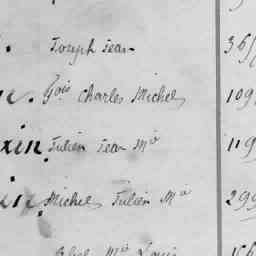 Joseph Jean 36
in. Gois Charles Michel 109
xin. Julien Jean Mie 119
in. Michel Julien Mie 299
Mie Louis